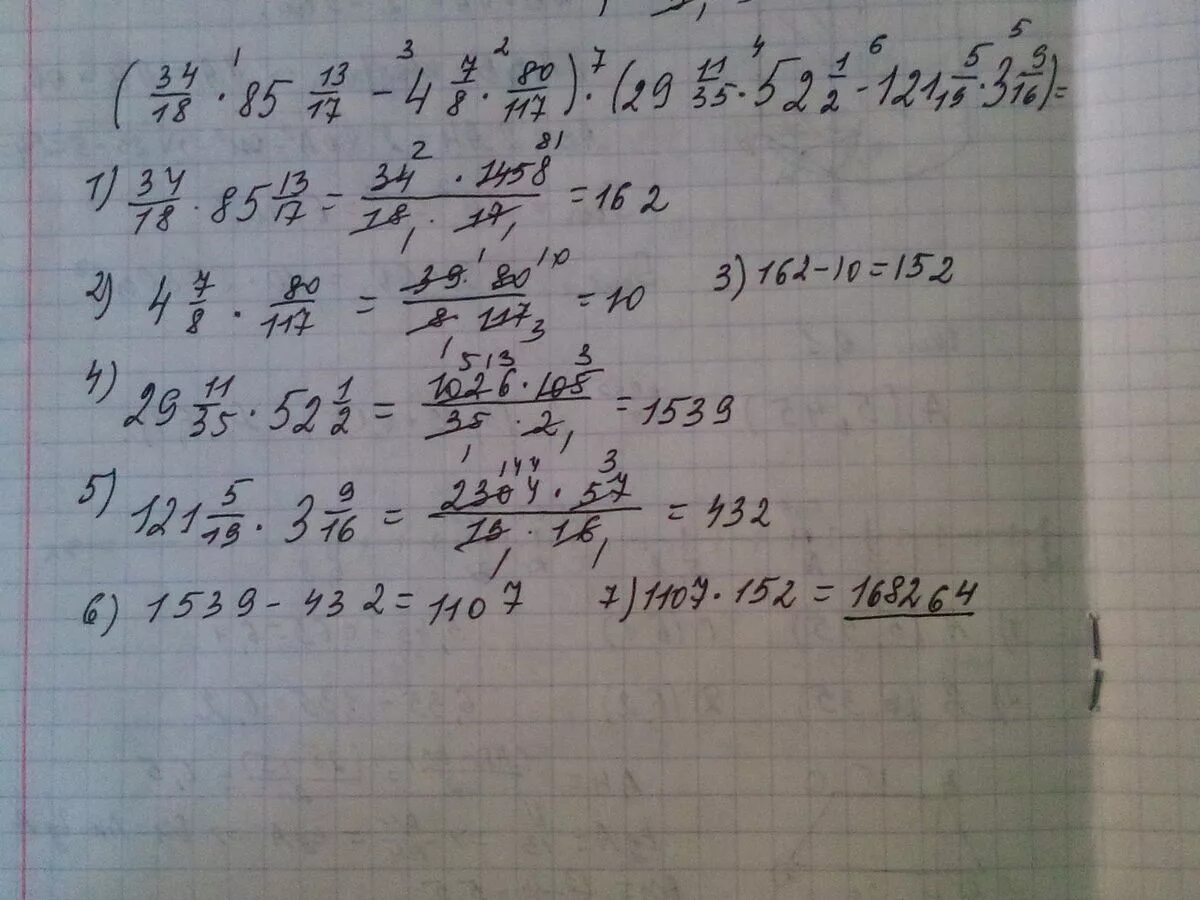 (34/18 · 85 13/17 - 4 7/8 · 80/117) · (29 11/35 · 52 1/2 - 121 5/19 · 3 9/16) =
1) 34/18 · 85 13/17 = 34 · 1458 / 18 · 17 = 162
2) 4 7/8 · 80/117 = 39 · 80 / 8 · 117 = 10 3) 162 - 10 = 152
4) 29 11/35 · 52 1/2 = 1026 · 105 / 35 · 2 = 1539
5) 121 5/19 · 3 9/16 = 2304 · 57 / 19 · 16 = 432
6) 1539 - 432 = 1107 7) 1107 · 152 = 168264